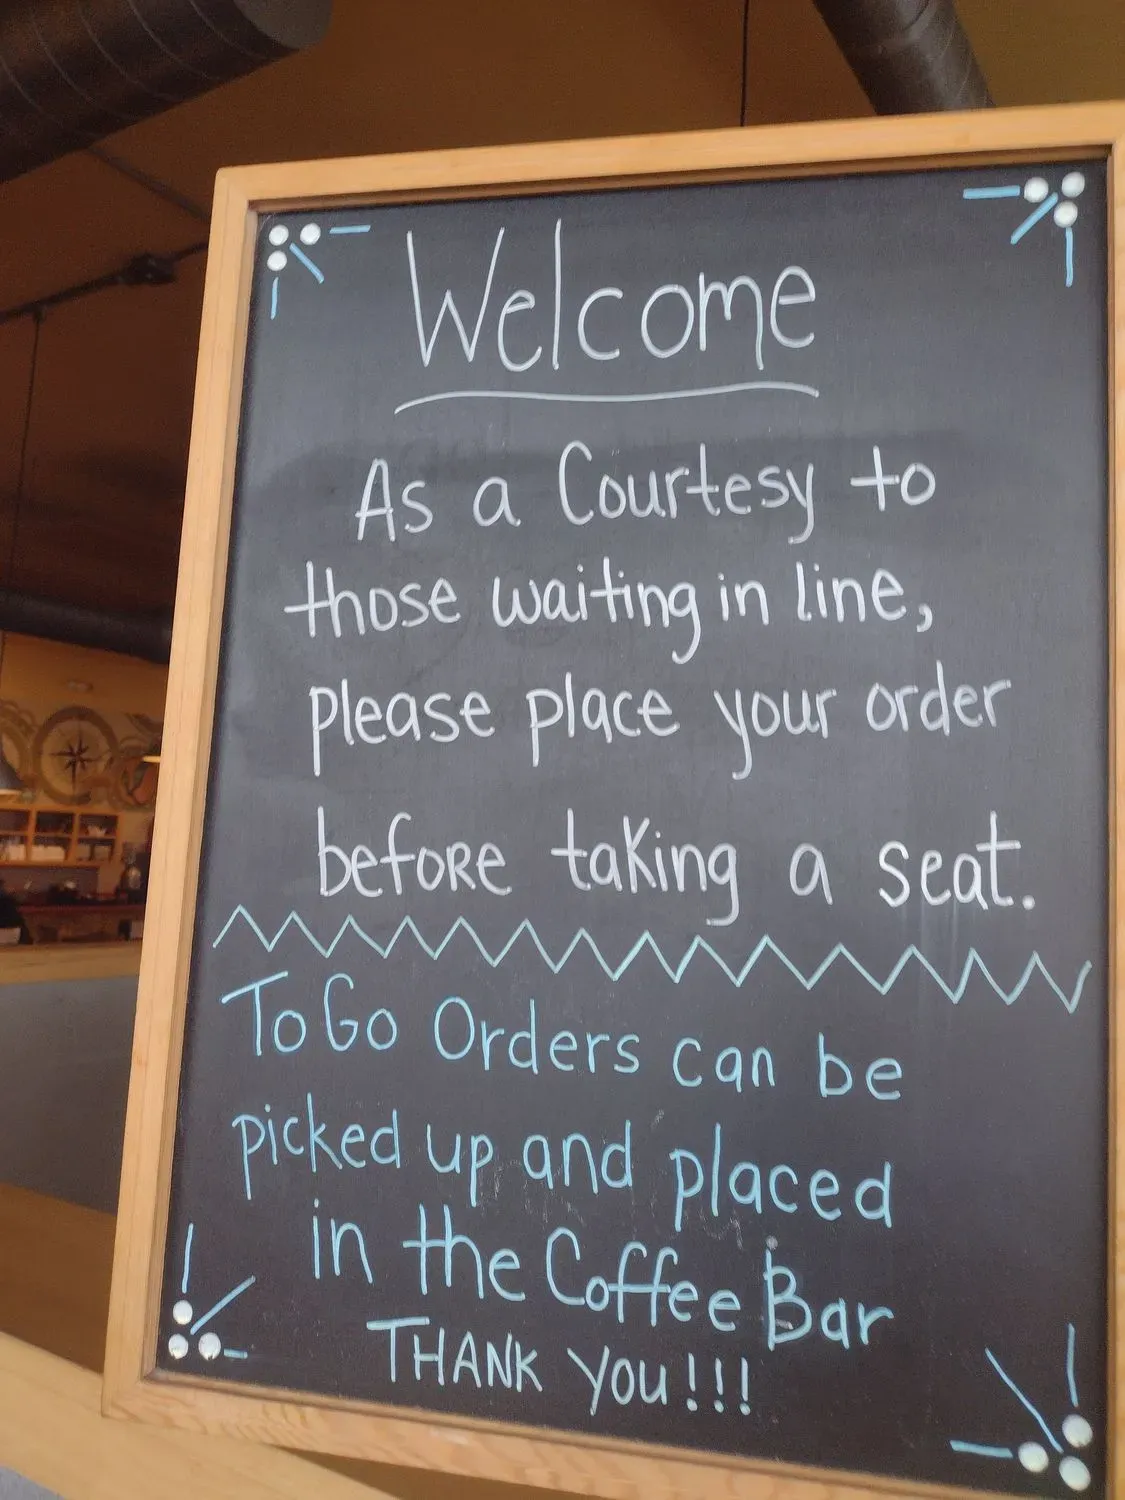 Welcome
As a Courtesy to
those waiting in line,
please place your order
before taking a seat.
To Go Orders can be
picked up and placed
in the Coffee Bar
THANK YOU!!!